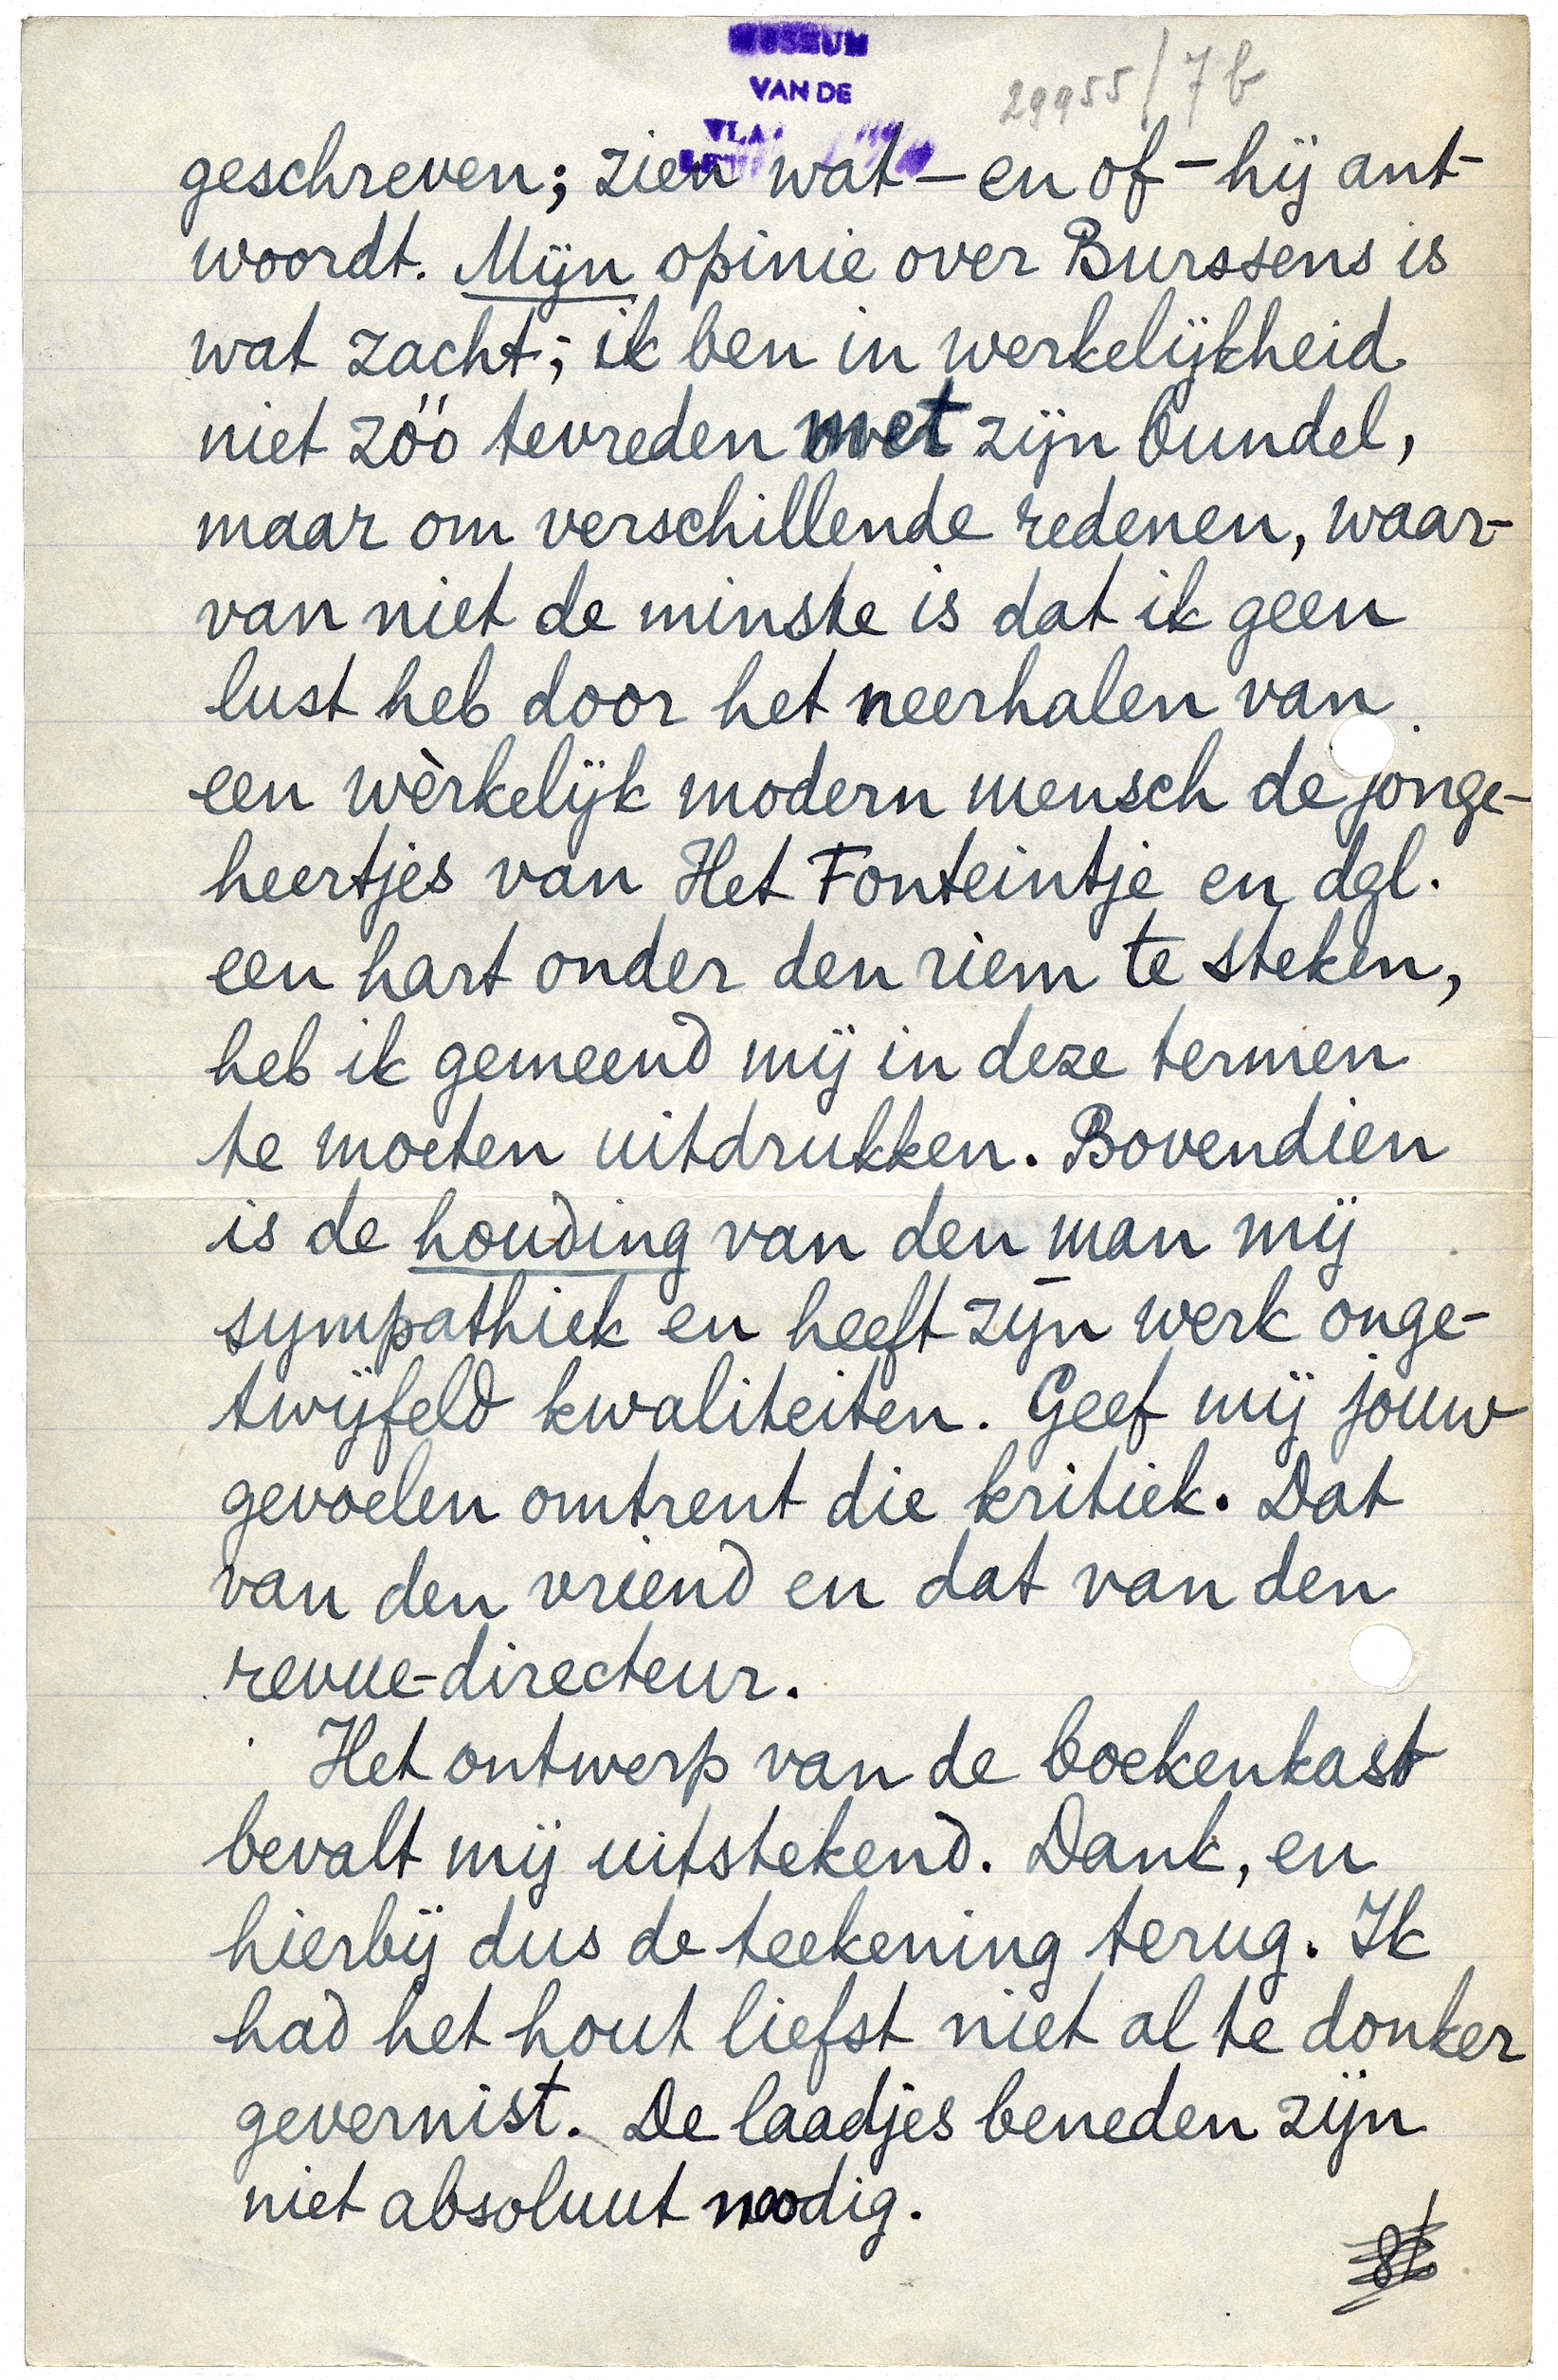 MUSEUM
VAN DE
29955/7b
geschreven; zien wat – en of – hij ant-
woordt. Mijn opinie over Burssens is
wat zacht; ik ben in werkelijkheid
niet zóó tevreden met zijn bundel,
maar om verschillende redenen, waar-
van niet de minste is dat ik geen
lust heb door het neerhalen van
een wèrkelijk modern mensch de jonge-
heertjes van Het Fonteintje en dgl.
een hart onder den riem te steken,
heb ik gemeend mij in deze termen
te moeten uitdrukken. Bovendien
is de houding van den man mij
sympathiek en heeft zijn werk onge-
twijfeld kwaliteiten. Geef mij jouw
gevoelen omtrent die kritiek. Dat
van den vriend en dat van den
revue-directeur.
Het ontwerp van de boekenkast
bevalt mij uitstekend. Dank, en
hierbij dus de teekening terug. Ik
had het hout liefst niet al te donker
gevernist. De laadjes beneden zijn
niet absoluut noodig.